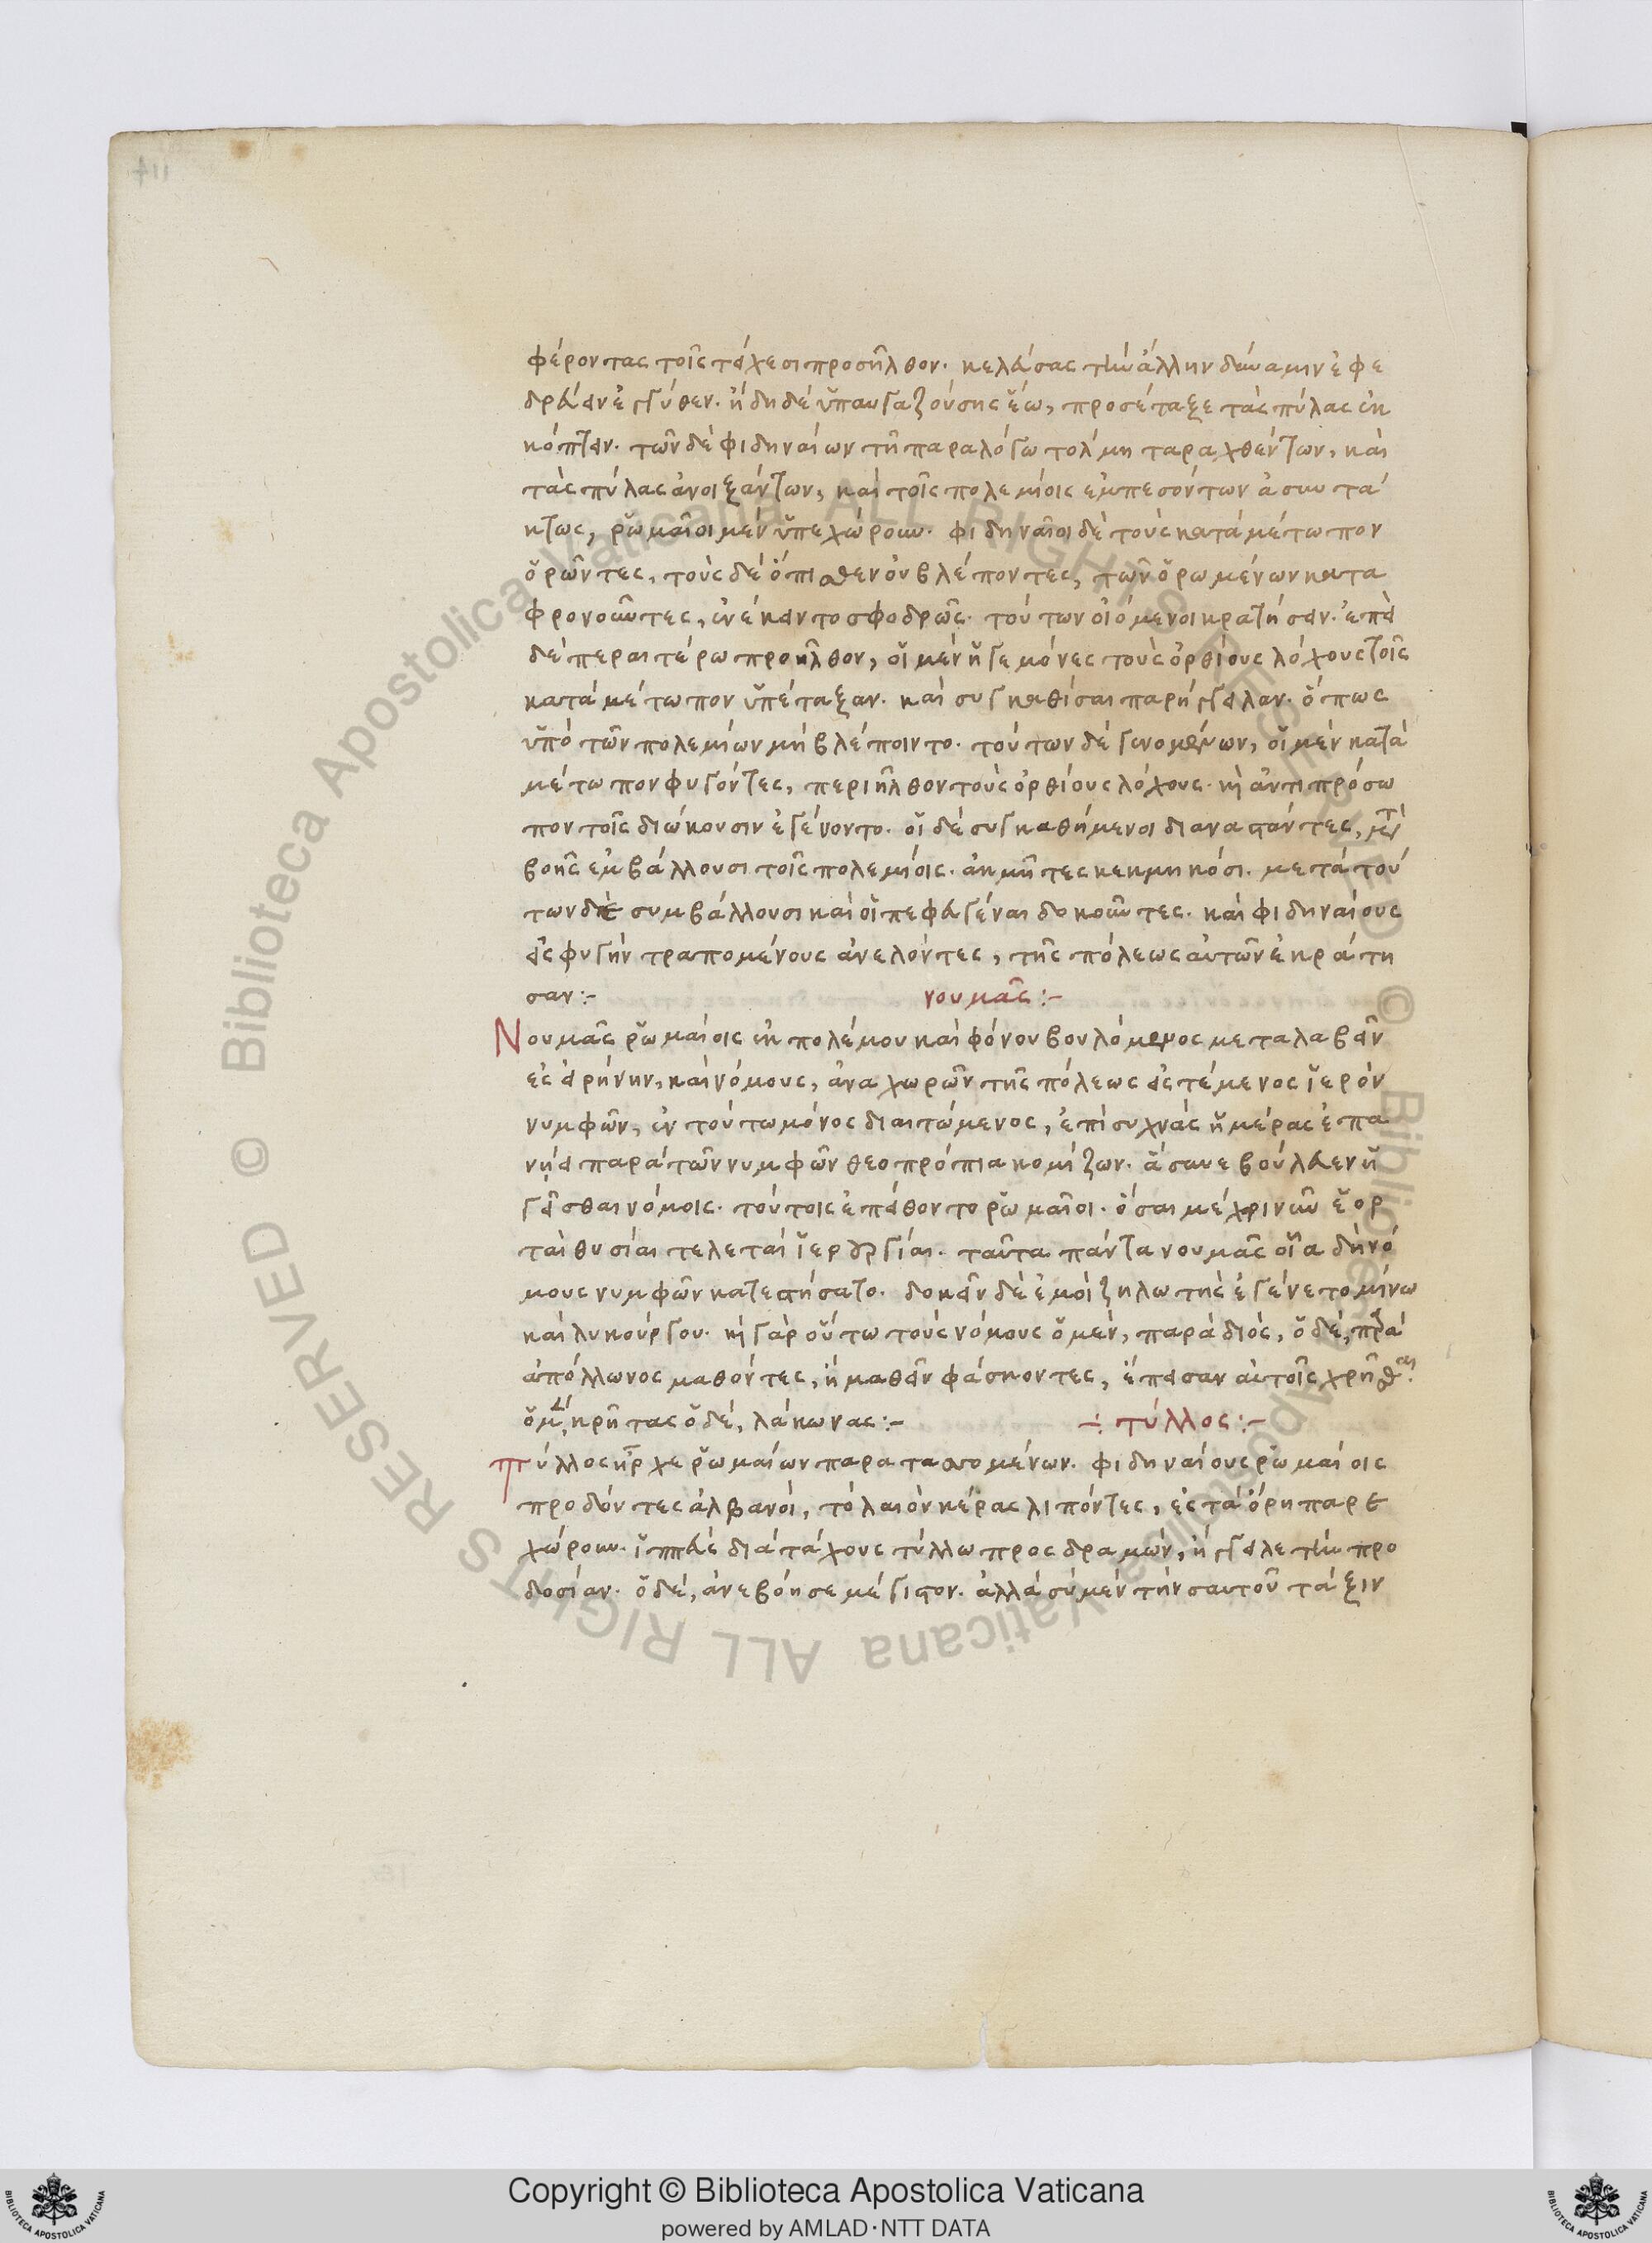 φέροντας τοῖς τάχεσι προσῆλθον· κελεύσας τὴν ἄλλην δύναμιν ἐφε
δρεύειν ἐγγύθεν. ἤδη δὲ ὑπαυγαζούσης ἕω, προσέταξε τὰς πύλας ἐκ
κόπτειν. τῶν δὲ φιδηναίων τῇ παραλόγω τόλμη ταραχθέντων, καὶ
τὰς πύλας ἀνοιξάντων, καὶ τοῖς πολεμίοις ἐμπεσόντων ἀσυντά
κτως, ῥωμαῖοι μὲν ὑπεχώρουν. φιδηναῖοι δὲ τοὺς κατὰ μέτωπον
ὁρῶντες, τοὺς δὲ ὄπισθεν οὐ βλέποντες, τῶν ὁρωμένων κατα
φρονοῦντες, ἐνέκειντο σφοδρῶς· τούτων οἰόμενοι κρατήσειν. ἐπεὶ
δὲ περαιτέρω προῆλθον, οἱ μὲν ἡγεμόνες τοὺς ὀρθίους λόχους τοῖς
κατὰ μέτωπον ὑπέταξαν. καὶ συγκαθίσαι παρήγγειλαν. ὅπως
ὑπὸ τῶν πολεμίων μὴ βλέποιντο. τούτων δὲ γενομένων, οἱ μὲν κατὰ
μέτωπον φυγόντες, περιῆλθον τοὺς ὀρθίους λόχους. κὶ ἀντιπρόσω
πον τοῖς διώκουσιν ἐγένοντο. οἱ δὲ συγκαθήμενοι διαναστάντες, μετὰ
βοῆς ἐμβάλλουσι τοῖς πολεμίοις. ἀκμῆτες κεκμηκόσι. μετὰ τού
των δὲ συμβάλλουσι καὶ οἱ πεφευγέναι δοκοῦντες. καὶ φιδηναίους
εἰς φυγὴν τραπομένους ἀνελόντες, τῆς πόλεως αὐτῶν ἐκράτη
σαν:- νουμᾶς:-
Νουμᾶς ῥωμαίοις ἐκ πολέμου καὶ φόνου βουλόμενος μεταλαβεῖν
ἐς εἰρήνην, καὶ νόμους, ἀναχωρῶν τῆς πόλεως εἰς τέμενος ἱερὸν
νυμφῶν, ἐν τούτω μόνος διαιτώμενος, ἐπὶ συχνὰς ἡμέρας ἐπα
νήει παρὰ τῶν νυμφῶν θεοπρόπια κομίζων. ἃ συνεβούλευεν ἡ
γεῖσθαι νόμοις. τούτοις ἐπείθοντο ῥωμαῖοι. ὅσαι μέχρι νῦν ἑορ
ταὶ θυσίαι τελεταὶ ἱερουργίαι. ταῦτα πάντα νουμᾶς οἷα δὴ νό
μους νυμφῶν κατεστήσατο. δοκεῖν δὲ ἐμοὶ ζηλωτὴς ἐγένετο μίνω
καὶ λυκούργου. κὶ γὰρ οὕτω τοὺς νόμους ὁ μὲν, παρὰ διὸς, ὁ δὲ, παρὰ
ἀπόλλωνος μαθόντες, ἢ μαθεῖν φάσκοντες, ἔπεισαν αὐτοῖς χρῆσθαι.
ὁ μὲν, κρῆτας ὁ δὲ, λάκωνας:- ÷ τύλλος:-
τύλλος ἦρχε ῥωμαίων παραταττομένων. φιδηναίους ῥωμαίοις
προδόντες ἀλβανοὶ, τὸ λαιὸν κέρας λιπόντες, ἐς τὰ ὄρη παρε
χώρουν. ἱππεὺς διὰ τάχους τύλλω προσδραμὼν, ἤγγειλε τὴν προ
δοσίαν. ὁ δὲ, ἀνεβόησε μέγιστον. ἀλλὰ σὺ μὲν τὴν σαυτοῦ τάξιν
Copyright © Biblioteca Apostolica Vaticana
powered by AMLAD·NTT DATA